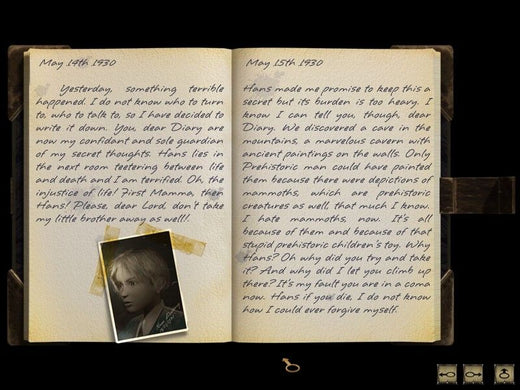 May 14th 1930
Yesterday, something terrible
happened. I do not know who to turn
to, who to talk to, so I have decided to
write it down. You, dear Diary are
now my confidant and sole guardian
of my secret thoughts. Hans lies in
the next room teetering between life
and death and I am terrified. Oh, the
injustice of life! First Mamma, then
Hans! Please, dear Lord, don't take
my little brother away as well!.
May 15th 1930
Hans made me promise to keep this a
secret but its burden is too heavy. I
know I can tell you, though, dear
Diary. We discovered a cave in the
mountains, a marvelous cavern with
ancient paintings on the walls. Only
Prehistoric man could have painted
them because there were depictions of
mammoths, which are prehistoric
creatures as well, that much I know.
I hate mammoths, now. It's all
because of them and because of that
stupid prehistoric children's toy. Why
Hans? Oh why did you try and take
it? And why did I let you climb up
there? It's my fault you are in a coma
now. Hans if you die, I do not know
how I could ever forgive myself.